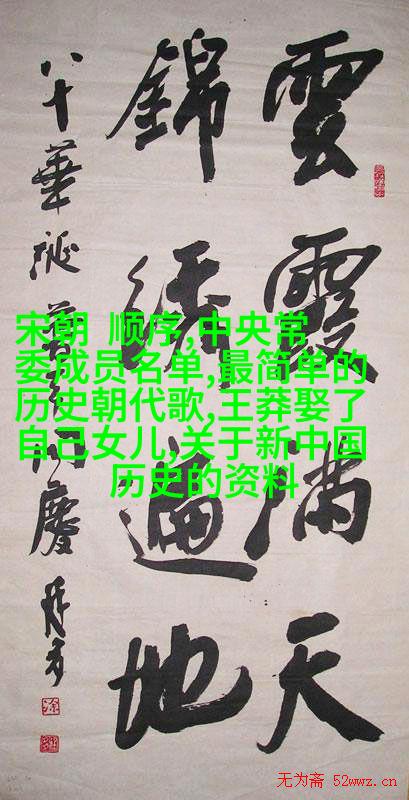 雲霞满天
錦绣遍地
八十華诞普天同慶
宋朝 顺序,中央常
委成员名单,最简单的
历史朝代歌,王莽娶了
自己女儿,关于新中国
历史的资料
无为斋 52wwz.cn